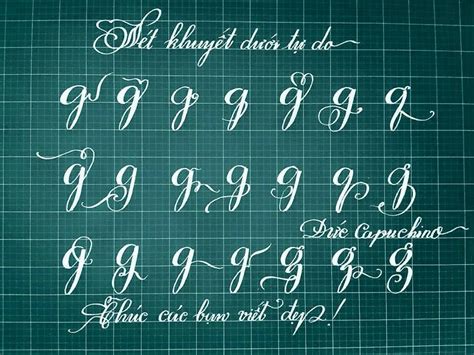 Nét khuyết dưới tự do
g g g g g g g
g g g g g g g
Đức Capuchino
g g g g g g g
Chúc các bạn viết đẹp!